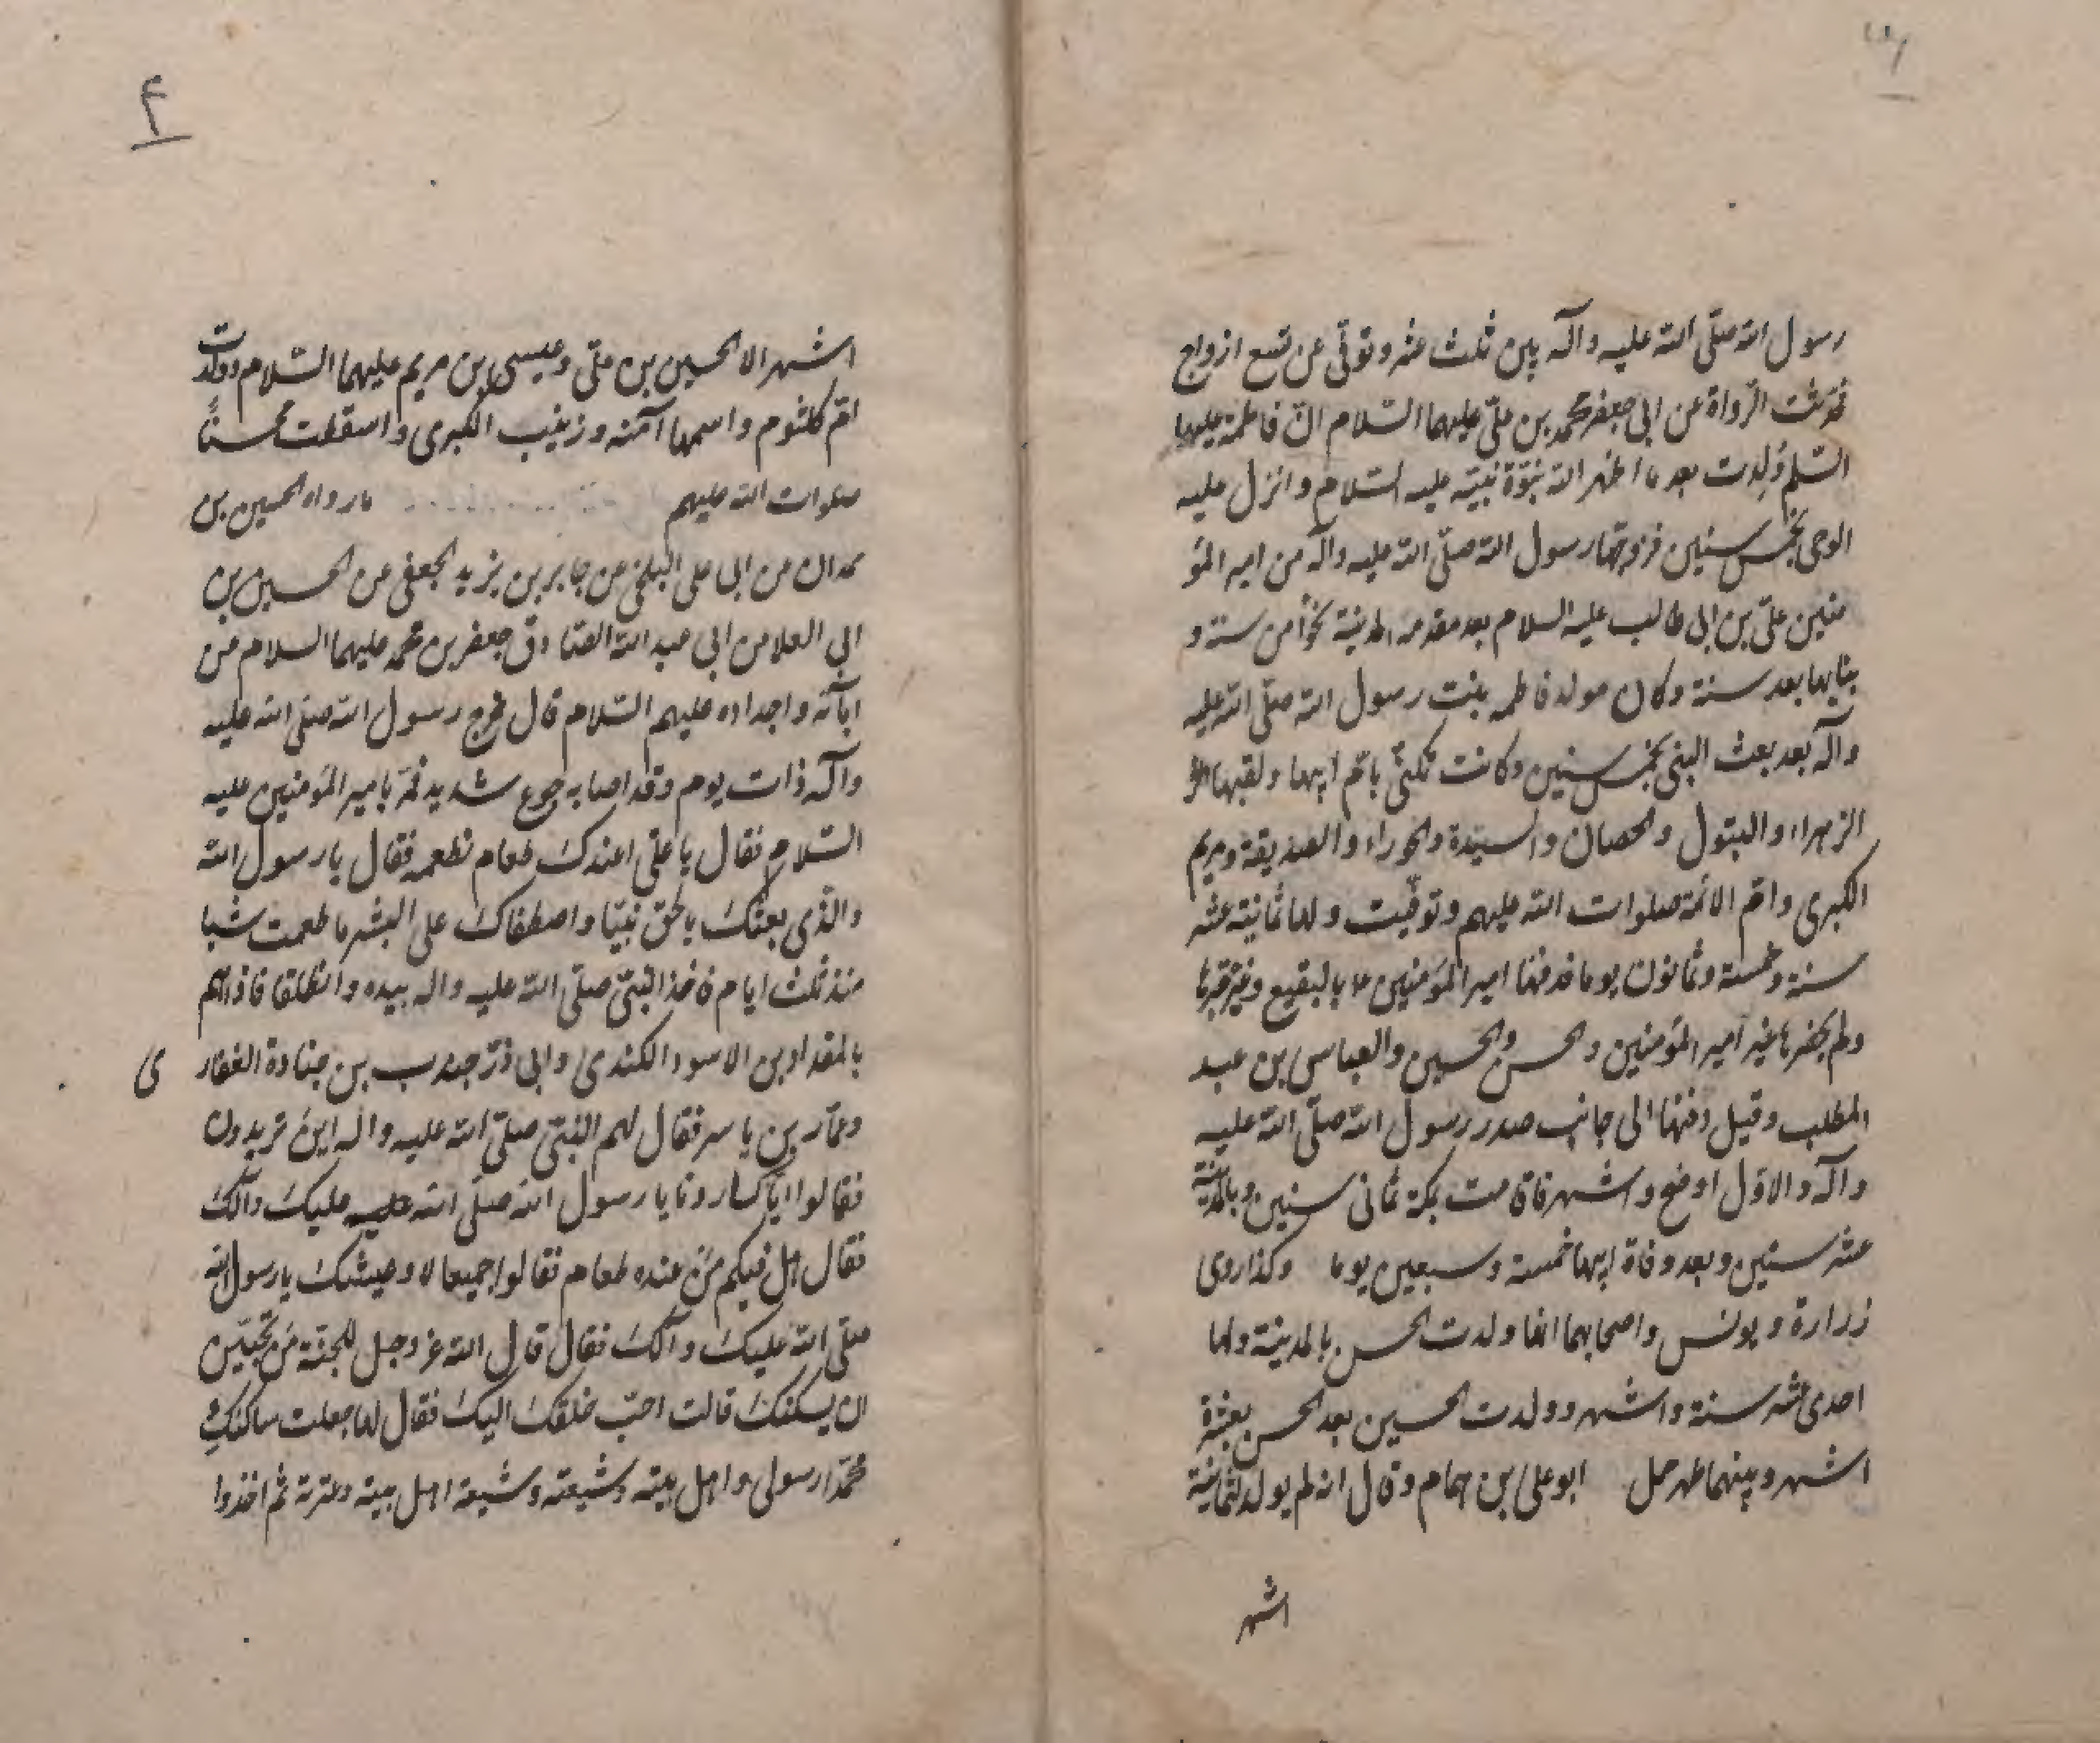 رسول الله صلّى الله عليه وآله بين ثلث عنه وتوفّي عن تسع ازواج
فحدّثت الرّواة عن ابي جعفر محمد بن علىّ عليهما السّلام انّ فاطمة عليها
السّلم وُلدت بعد ما اظهر الله نبوّة نبيّه عليه السّلام وانزل عليه
الوحى بخمس سنين فزوجها رسول الله صلّى الله عليه وآله من امير المؤ
منين علىّ بن ابى طالب عليه السلام بعد مقدمه المدينة نحواً من سنة و
بنا بها بعد سنة وكان مولد فاطمه بنت رسول الله صلّى الله عليه
وآله بعد بعث النبى بخمس سنين وكانت تكنىّ بامّ ابيها ولقبها
الزهراء والبتول والحصان والسيّدة والحوراء والصديقة ومريم
الكبرى وامّ الائمة صلوات الله عليهم وتوفّيت ولها ثمانية عشر
سنة وخمسة وثمانون يوما فدفنها امير المؤمنين ع بالبقيع وغيّر قبرها
ولم يحضرها غير امير المؤمنين والحسن والحسين والعباس بن عبد
المطلب وقيل دفنها الى جانب صدر رسول الله صلّى الله عليه
وآله والاوّل اوضح واشهر فاقامت بمكة ثمانى سنين وبالمدينة
عشر سنين وبعد وفاة ابيها خمسة وسبعين يوما وكذا روى
زرارة ويونس واصحابهما انها ولدت الحسن بالمدينة ولها
احدى عشر سنة واشهر وولدت الحسين بعد الحسن بعشرة
اشهر وبينهما طهر حمل ابو على بن همام وقال انه لم يولد لثمانية
اشهر
۴
اشهر الا الحسين بن علىّ وعيسى بن مريم عليهما السّلام وولدت
امّ كلثوم واسمها آمنه وزينب الكبرى واسقطت محسناً
صلوات الله عليهم ما رواه الحسين بن
حمدان عن ابى على البلخى عن جابر بن يزيد الجعفى عن الحسين بن
ابى العلا عن ابى عبد الله الصّادق جعفر بن محمد عليهما السلام عن
ابآئه واجداده عليهم السّلام قال خرج رسول الله صلى الله عليه
وآله ذات يوم وقد اصابه جوع شديد فمرّ بامير المؤمنين عليه
السّلام فقال يا على اعندك طعام نطعمه فقال يا رسول الله
والذّى بعثك بالحق نبيّا واصطفاك على البشر ما طعمت شيا
منذ ثلث ايام فاخذ النبىّ صلّى الله عليه واله بيده وانطلقا فاذاهم
بالمقداد بن الاسود الكندى وابى ذرّ جندب بن جنادة الغفار ى
وعمّار بن ياسر فقال لهم النبىّ صلّى الله عليه واله اين تريدون
فقالوا ايّاك اردنا يا رسول الله صلّى الله عليه عليك وآلك
فقال هل فيكم مَن عنده طعام فقالوا جميعا لا وعيشك يا رسول الله
صلّى الله عليك وآلك فقال قال الله عز وجل للجنّة مَن تحبّين
ان يسكنك قالت احبّ خلقك اليك فقال لها جعلت ساكنكِ
محمّدا رسولى واهل بيته وشيعته وشيعة اهل بيته وعترته ثم اخذوا